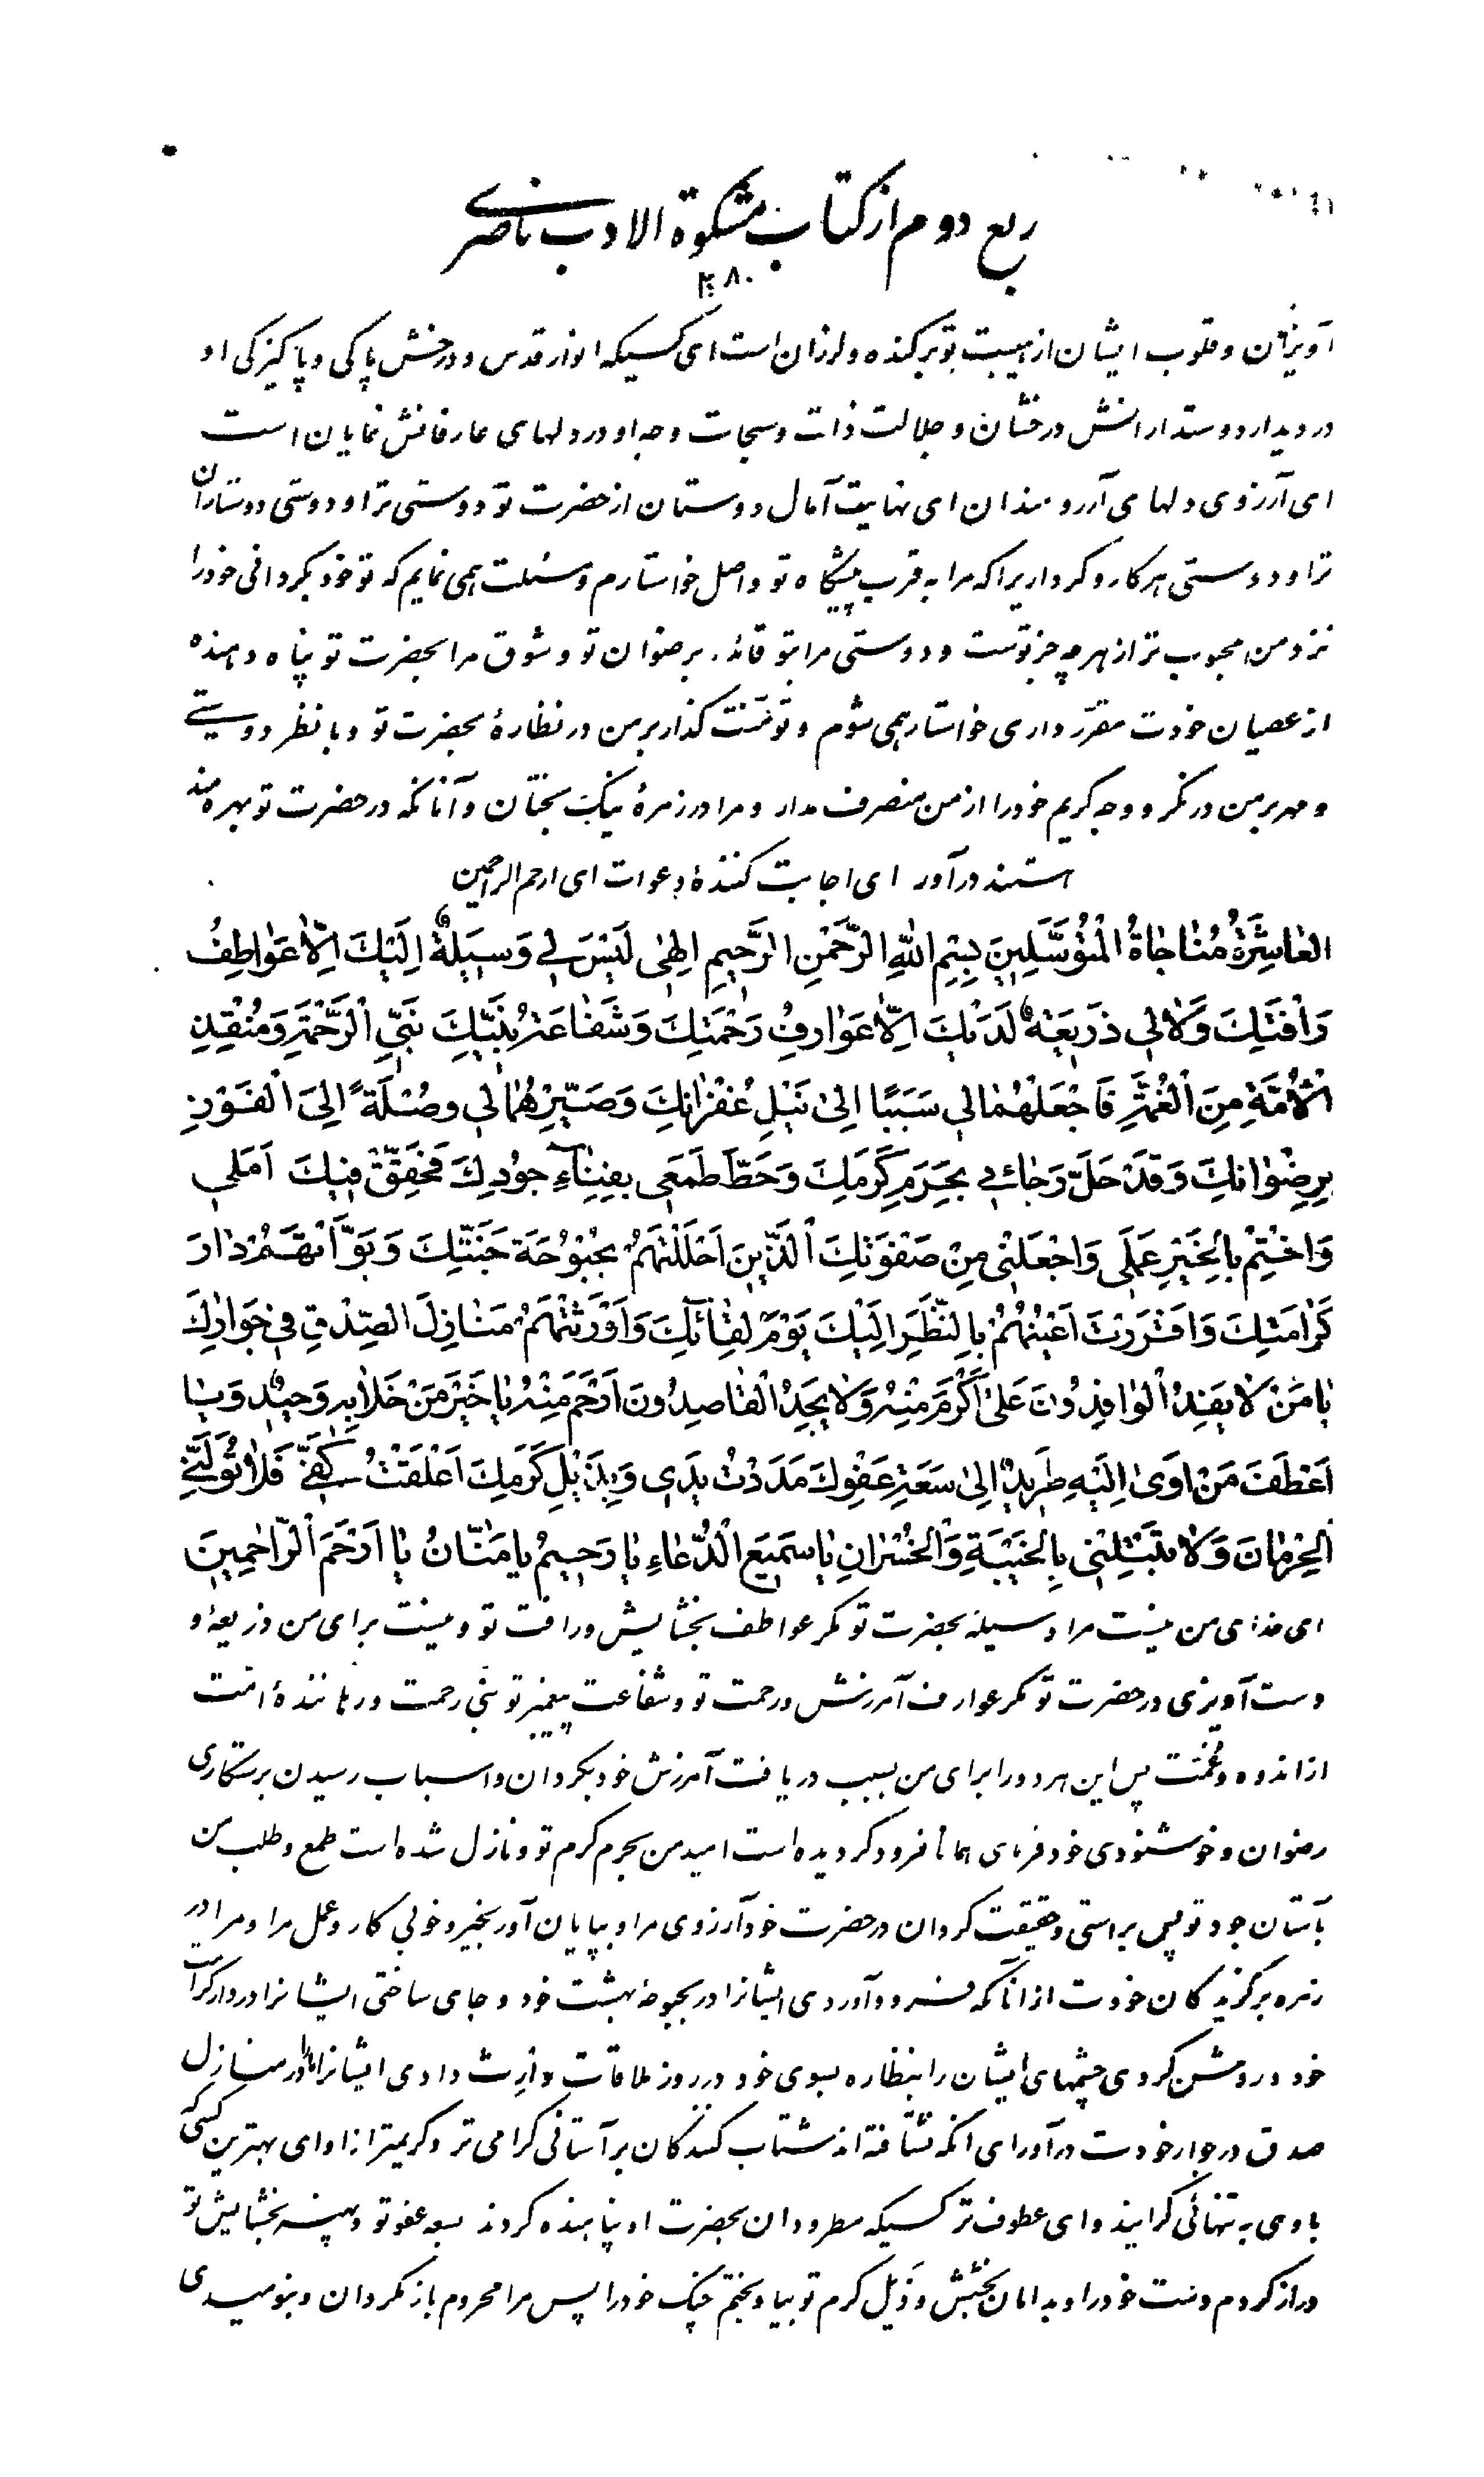 ربع دوم از کتاب مشکوة الادب ناصری
۴۸۰
آویزان و قلوب ایشان از هیبت تو برکنده و لرزان است ای کسیکه انوار قدس و درخش پاکی و پاکیزکی او
در دیدار دوستدارانش درخشان و جلالت ذات و سبحات وجه او در دلهای عارفانش نمایان است
ای آرزوی دلهای آرزومندان ای نهایت آمال دوستان از حضرت تو دوستی ترا و دوستی دوستاران
ترا و دوستی هر کار و کرداریرا که مرا به قرب پیشگاه تو واصل خواستارم و مسئلت همی نمایم که تو خود بگردانی خود را
نزد من محبوب تر از هر چه جز توست و دوستی مرا بتو قائد برضوان تو و شوق مرا بحضرت تو پناه دهنده
از عصیان خودت مقرر داری خواستار همی شوم و تو منت گذار بر من در نظارهٔ بحضرت تو و با نظر دوستی
و مهر بر من در نگر و وجه کریم خود را از من منصرف مدار و مرا در زمرهٔ نیک بختان و آنانکه در حضرت تو بهره مند
هستند درآور ای اجابت کنندهٔ دعوات ای ارحم الراحمین
العٰاشِرَةُ مُنٰاجٰاةُ الْمُتَوَسِّلِینَ بِسْمِ اللهِ الرَّحْمٰنِ الرَّحِیمِ اِلٰهِی لَیْسَ لِی وَسِیلَةٌ اِلَیْكَ اِلّٰا عَوٰاطِفُ
رَأْفَتِكَ وَلٰا لِی ذَرِیعَةٌ لَدَیْكَ اِلّٰا عَوٰارِفُ رَحْمَتِكَ وَشَفٰاعَةُ نَبِیِّكَ نَبِیِّ الرَّحْمَةِ وَمُنْقِذِ
الْاُمَّةِ مِنَ الْغُمَّةِ فَاجْعَلْهُمٰا لِی سَبَبًا اِلیٰ نَیْلِ غُفْرٰانِكَ وَصَیِّرْهُمٰا لِی وُصْلَةً اِلَی الْفَوْزِ
بِرِضْوٰانِكَ وَقَدْ حَلَّ رَجٰائِی بِحَرَمِ كَرَمِكَ وَحَطَّ طَمَعِی بِفِنٰاءِ جُودِكَ فَحَقِّقْ فِیكَ اَمَلِی
وَاخْتِمْ بِالْخَیْرِ عَمَلِی وَاجْعَلْنِی مِنْ صَفْوَتِكَ الَّذِینَ اَحْلَلْتَهُمْ بُحْبُوحَةَ جَنَّتِكَ وَبَوَّأْتَهُمْ دٰارَ
كَرٰامَتِكَ وَاَقْرَرْتَ اَعْیُنَهُمْ بِالنَّظَرِ اِلَیْكَ یَوْمَ لِقٰائِكَ وَاَوْرَثْتَهُمْ مَنٰازِلَ الصِّدْقِ فِی جِوٰارِكَ
یٰا مَنْ لٰا یَفِدُ الْوٰافِدُونَ عَلیٰ اَكْرَمَ مِنْهُ وَلٰا یَجِدُ الْقٰاصِدُونَ اَرْحَمَ مِنْهُ یٰا خَیْرَ مَنْ خَلٰا بِهِ وَحِیدٌ وَیٰا
اَعْطَفَ مَنْ اَوَیٰ اِلَیْهِ طَرِیدٌ اِلیٰ سَعَةِ عَفْوِكَ مَدَدْتُ یَدِی وَبِذَیْلِ كَرَمِكَ اَعْلَقْتُ كَفِّی فَلٰا تُوَلِّنِی
الْحِرْمٰانَ وَلٰا تَبْتَلِنِی بِالْخَیْبَةِ وَالْخُسْرٰانِ یٰا سَمِیعَ الدُّعٰاءِ یٰا رَحِیمُ یٰا مَنّٰانُ یٰا اَرْحَمَ الرّٰاحِمِینَ
ای خدای من نیست مرا وسیله بحضرت تو مگر عواطف بخشایش و رافت تو و نیست برای من ذریعهٔ و
دست آویزی در حضرت تو مگر عوارف آمرزش و رحمت تو و شفاعت پیغمبر تو نبی رحمت و رهانندهٔ امت
از اندوه و غمت پس این هر دو را برای من سبب دریافت آمرزش خود بگردان و اسباب رسیدن برستگاری
رضوان و خوشنودی خود فرمای همانا فرود گردیده است امید من بحرم کرم تو و نازل شده است طمع و طلب من
بآستان جود تو پس براستی و حقیقت گردان در حضرت خود آرزوی مرا و بپایان آور بخیر و خوبی کار و عمل مرا و مرا در
زمره برگزیدگان خودت از آنانکه فرود آوردی ایشانرا در بحبوحهٔ بهشت خود و جای ساختی ایشانرا در دار کرامت
خود و روشن کردی چشمهای ایشان را بنظاره بسوی خود در روز ملاقات و ارث دادی ایشانرا در منازل
صدق در جوار خودت درآور ای آنکه نشتافته اند شتاب کنندکان بر آستانی گرامی تر و کریمتر از او ای بهترین کسی که
با وی به تنهائی گرایند و ای عطوف تر کسیکه مطرودان بحضرت او پناهنده گردند بسعه عفو تو و پهنه بخشایش تو
دراز کردم دست خود را و بدامان بخشش و ذیل کرم تو بیاویختم چنگ خود را پس مرا محروم باز مگردان و بنومیدی